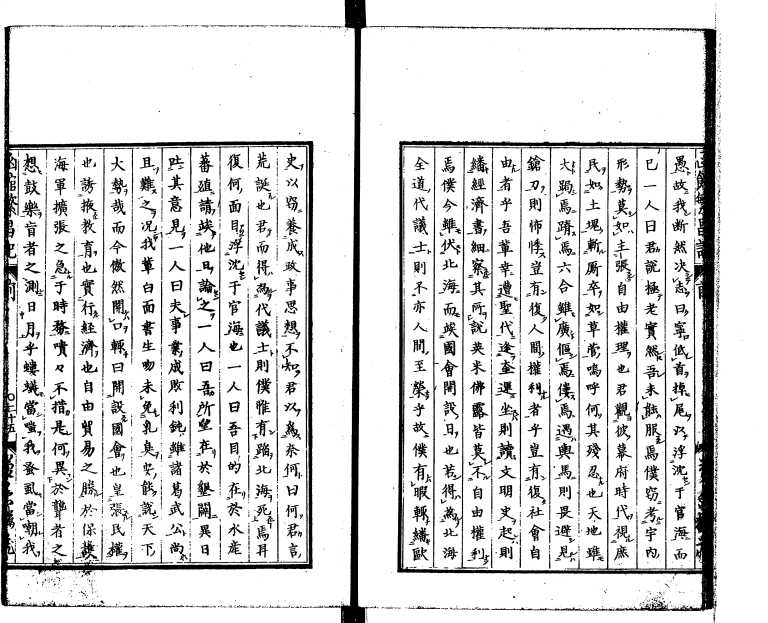 愚故我断然決志曰寧低首掉尾以浮沈于官海而
已一人曰君説極老實然吾未能服焉僕窃考宇内
形勢莫如主張自由權理也君觀彼幕府時代視庶
民如土塊斬馘卒如草菅嗚呼何其残忍也天地雖
大跼焉蹐焉六合雖廣傴焉僂焉遇輿馬則畏避見
鎗刀則怖悸豈有復人間權利者乎豈有復社會自
由者乎吾輩幸遭聖代逢奎運坐則讀文明史起則
繙經濟書細察其所説英米佛露皆莫不自由權利
焉僕今雖伏北海而竢國會開設日也若得為北海
全道代議士則不亦人間至榮乎故僕有暇輙繙歐
史以窃養成政事思想不知君以為奈何曰何君言
荒誕也君而得為代議士則僕惟有蹈北海死焉耳
復何面目浮沈于官海也一人曰吾目的在於水産
蕃殖請竢他日論之一人曰吾所望在於墾闢異日
陳其意見一人曰夫事業成敗利鈍雖諸葛武公尚
且難之况我輩白面書生吻未免乳臭安能説天下
大勢哉而今傲然開口輙曰開設國會也皇張民權
也誘掖教育也實行經濟也自由貿易之勝於保護
海軍擴張之急于時務嘖々不措是何異於聾者之
想鼓樂盲者之測日月乎螻蟻當嗤我蚤虱當嘲我
函館繁昌記 前
〇二十五